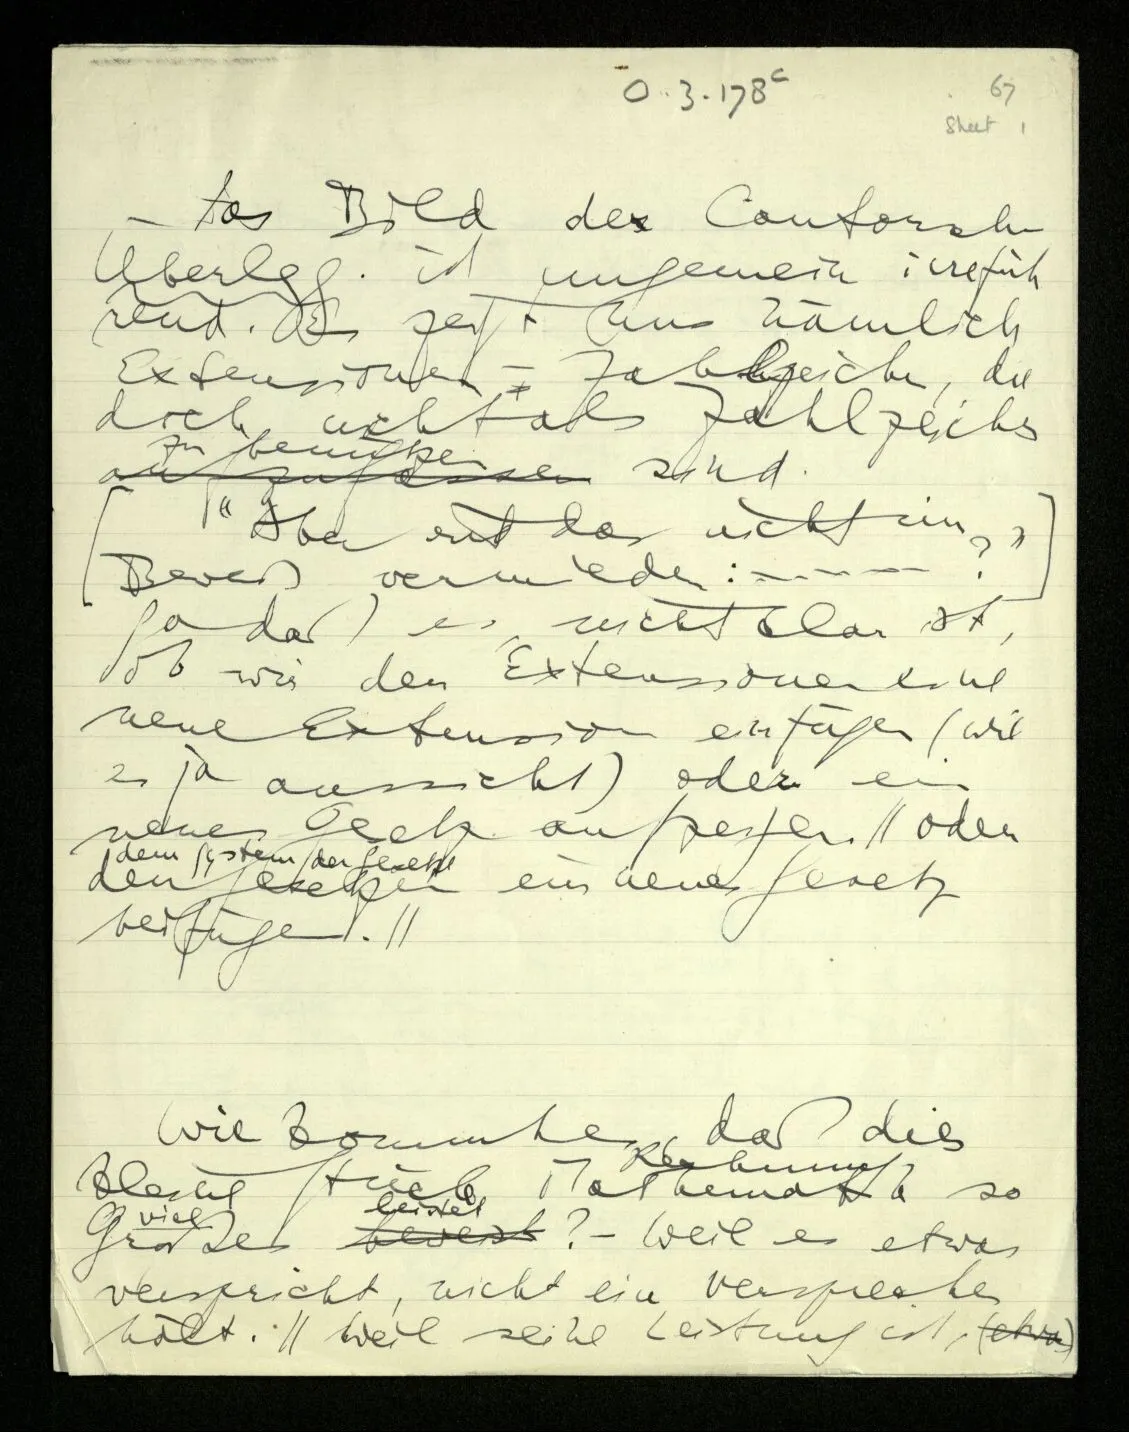 0.3.178c
67
Sheet 1
– Das Bild der Cantorschen
Überleg. ist ungemein irrefüh
rend. Es zeigt uns nämlich
Extensionen – Zahlzeichen, die
doch nicht als Zahlzeichen
zu benützen
aufzufassen sind.
["Aber wird das nicht im
Beweis vermieden: – – – – – ?"]
so daß es nicht klar ist,
ob wir den Extensionen eine
neue Extension einfügen (wie
es ja aussieht) oder ein
neues Gesetz aufzeigen. // oder
dem System der Gesetze
den Gesetzen ein neues Gesetz
beifügen. //
Wie kommt es, daß dies
Rechnung
kleine Stück Mathematik so
viel leistet
Großes beweist? – Weil es etwas
verspricht, nicht ein Versprechen
hält. // Weil seine Leistung ist, (etwas)